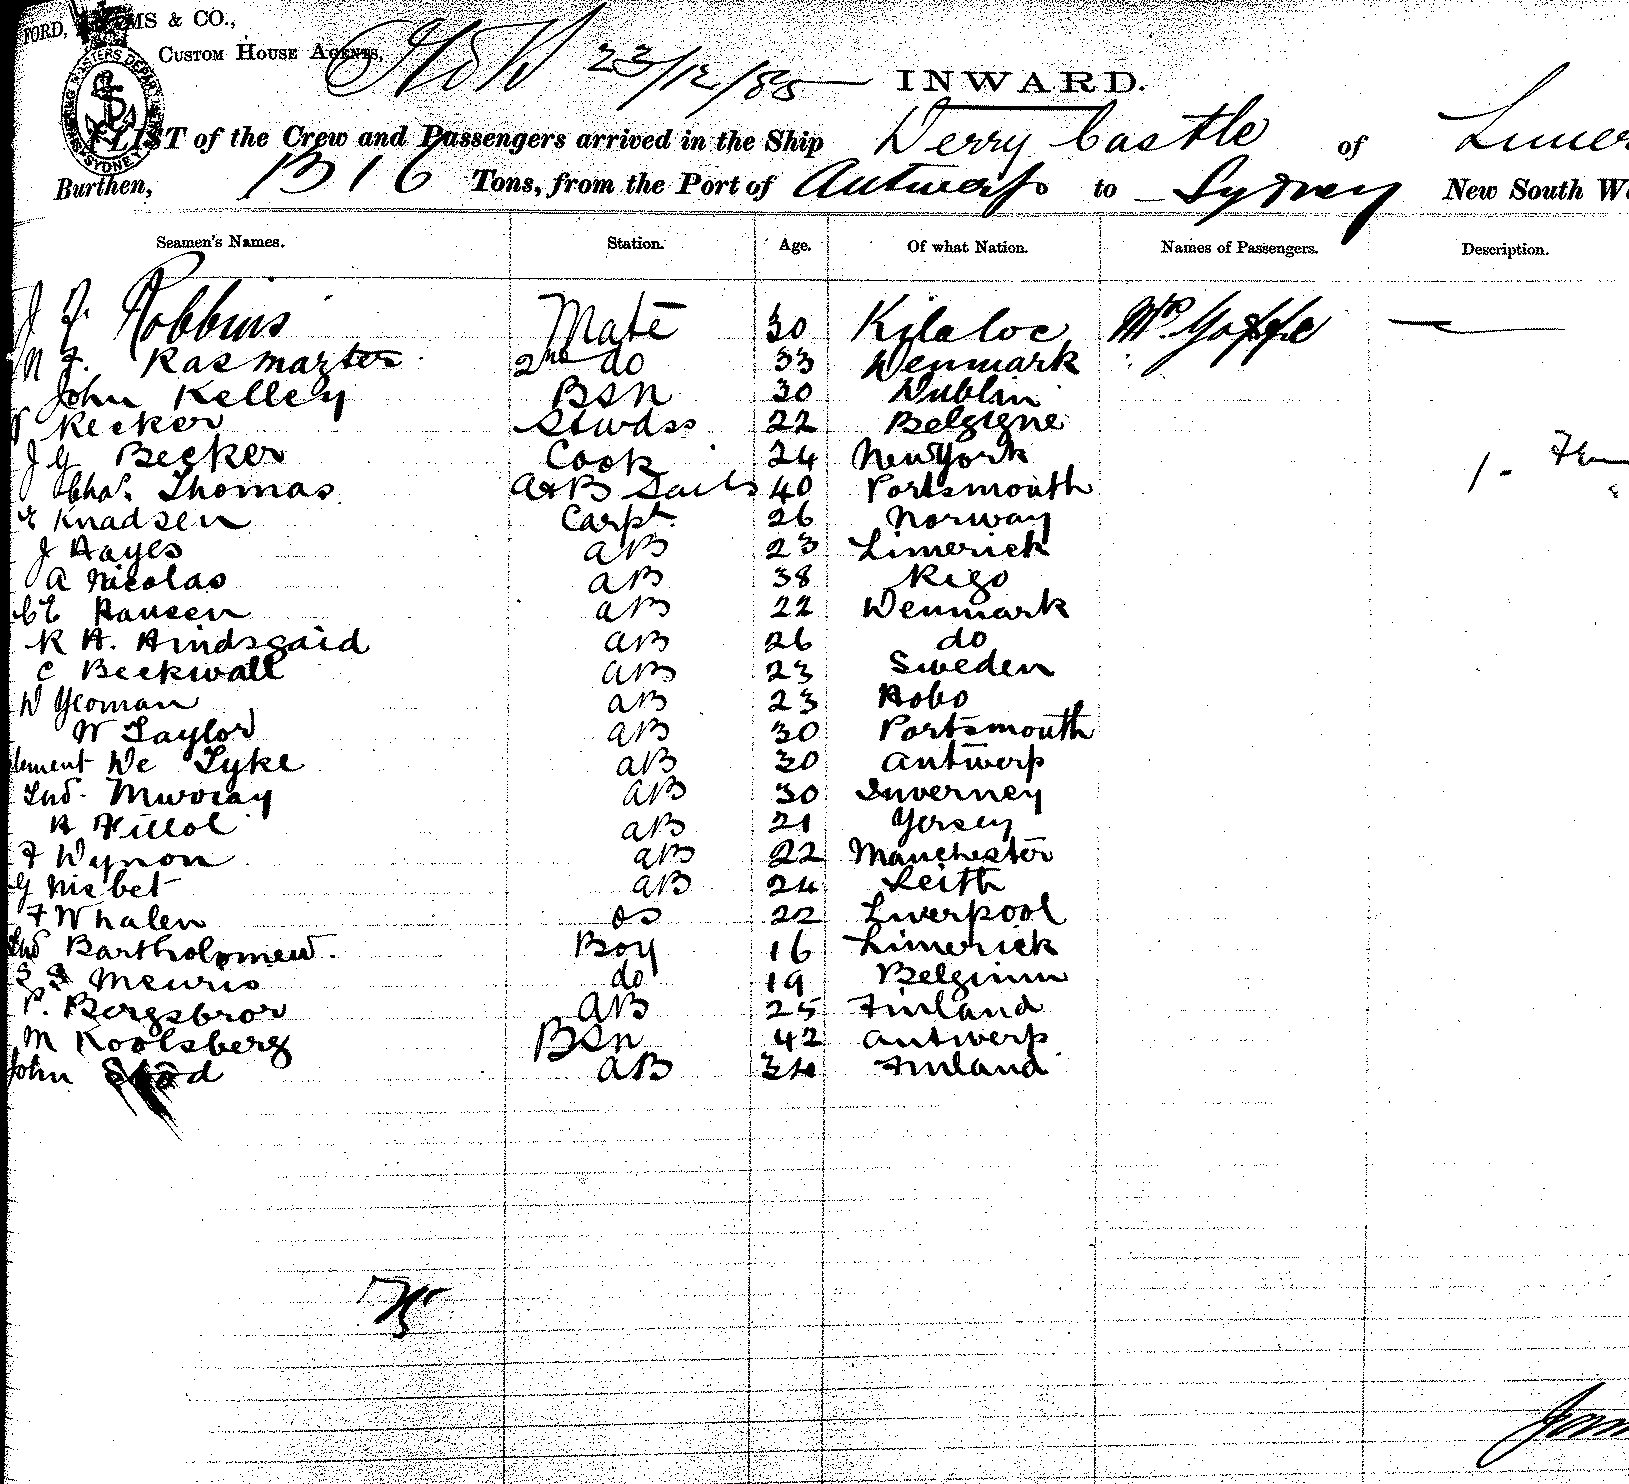 & CO.,
CUSTOM HOUSE AGENTS,
23/12/85
INWARD.
LIST of the Crew and Passengers arrived in the Ship Derry Castle of
Burthen, B 1 6 Tons, from the Port of Antwerp to Sydney New South
Seamen's Names. Station. Age. Of what Nation. Names of Passengers. Description.
J F. Robbins Mate 30 Kilaloe
N F. 2nd do 33 Denmark
John Kelley BSN 30 Dublin
Recker 22
J G Becker Cook 24 New York
Chas. Thomas 40 Portsmouth
Knadsen Carpt. 26 Norway
J Hayes AB 23 Limerick
A Nicolas AB 38 Rigo
Hansen AB 22 Denmark
R H. AB 26 do
C Beckwall AB 23 Sweden
W Yeoman AB 23 Hobo
W Taylor AB 30 Portsmouth
De Tyke AB 30 Antwerp
Murray AB 30 Inverney
H Fillol AB 21 Jersey
F Wynon AB 22 Manchester
G Nisbet AB 24 Leith
F Whalen OS 22 Liverpool
Bartholomew. Boy 16 Limerick
Meuris do 19 Belginm
P. Bergsbror AB 25 Finland
M Koolsberg BSn 42 Antwerp
John AB 34 Finland